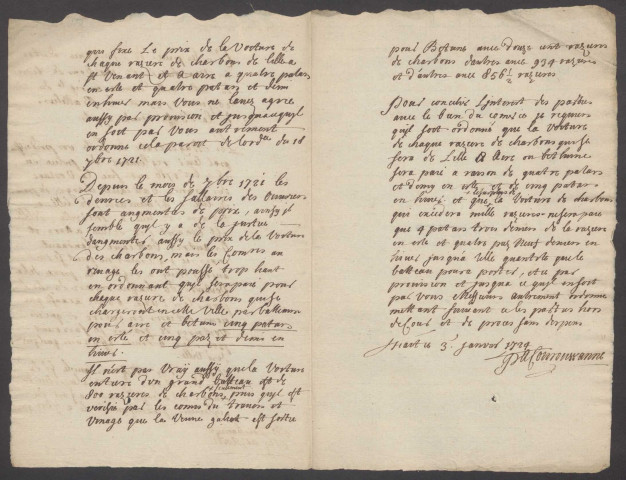 que fixe Le prix de la Voiture de
chaque razure de charbons de lille a
st Venant et a aire a quatre patars
en esté et quatre patars et demi
en hiver mais Vous ne l'avez agrée
aussy par provision et jusqua quil
en soit par Vous autrement
ordonné cela paroit de lord. du 18
7bre 1721
Depuis le mois de 7bre 1721 les
denrees et les sallaires des Ouvriers
sont augmentez de prix, aussy il
semble quil y a de la justice
daugmenter aussy le prix de la Voiture
des charbons, mais les Comis au
rivage les ont poussé trop haut
en ordonnant quil sera paié pour
chaque razure de charbons quise
chargeront en cette Ville par batteaux
pour aire et betune cinq patars
en esté et cinq pat. et demi en
hiver.
Il n'est pas Vray aussy que la Voiture
entiere d'un grand batteau est de
800 razures de charbons, puis quil est
verifié par les comis du
Vinage que la est sortie
pour Betune avec douze cent razures
de charbons d'autres avec 934 razures
et d'autres avec 856 1/2 razures
Pour concilier l'interest des parties
avec le bien du comerce je requiers
quil soit ordonné que la Voiture
de chaque razure de charbons quise
fera de Lille a Aire ou bethune
sera paié a raison de quatre patars
et demy en esté et de cinq patars
en hiver et que la Voiture de charbons
qui excedera mille razures ne sera paié
que 4 patars trois deniers de la razure
en esté et quatre pat. Neuf deniers en
hiver jusqua telle quantité que le
batteau poura porter, et ce par
provision et jusqua ce quil en soit
par Vous Messieurs autrement ordonné
mettant sur ce les parties hors
de Cour et de proces sans depens
fait ce 3e janvier 1724